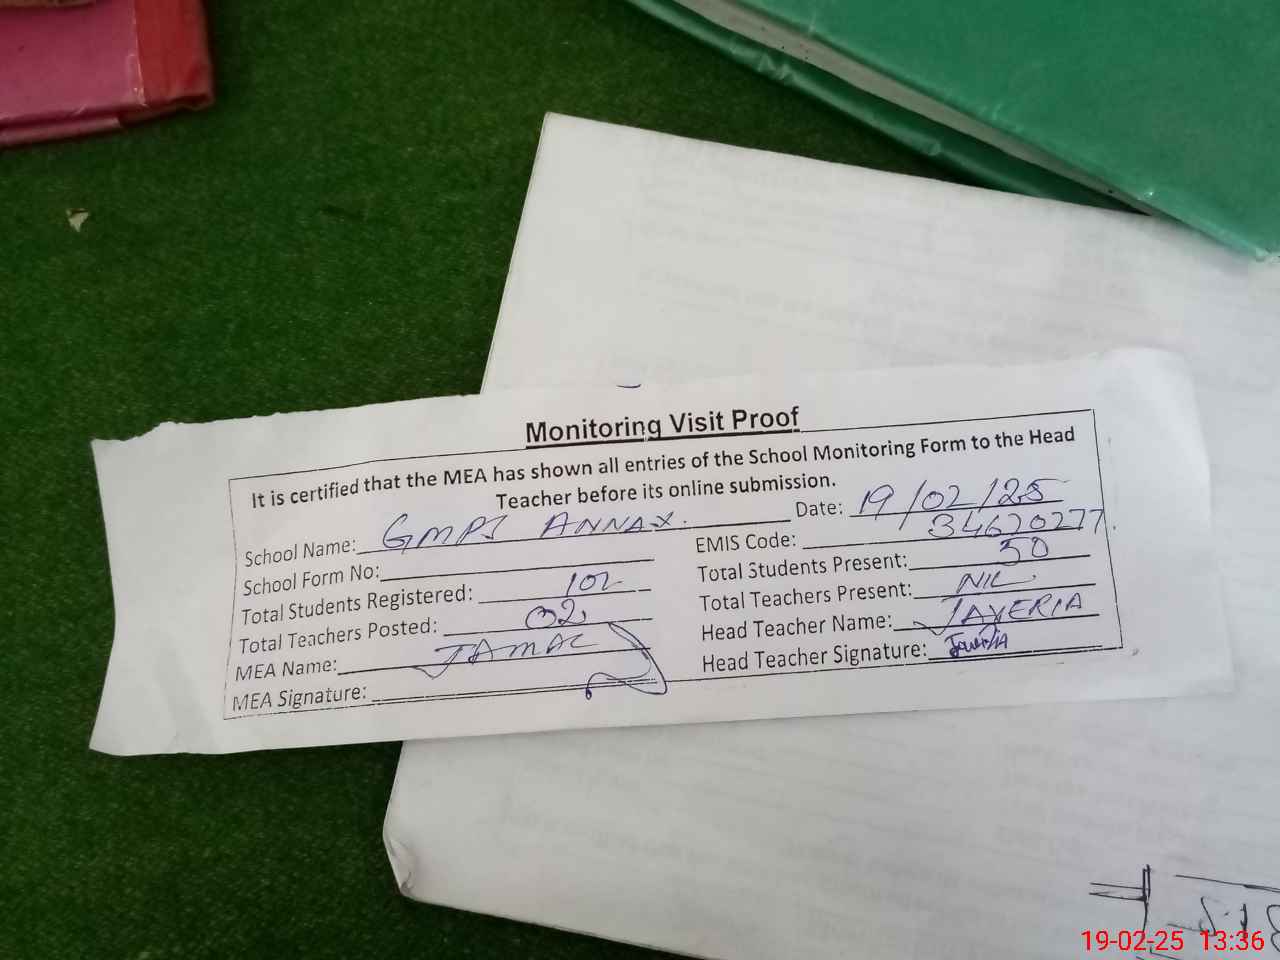 Monitoring Visit Proof
It is certified that the MEA has shown all entries of the School Monitoring Form to the Head
Teacher before its online submission.
School Name: GMPS ANNAX. Date: 19/02/25
School Form No: EMIS Code: 34620277
Total Students Registered: 102 Total Students Present: 50
Total Teachers Posted: 02 Total Teachers Present: NIL
MEA Name: JAMAL Head Teacher Name: JAVERIA
MEA Signature: Head Teacher Signature: Javeria
19-02-25 13:36